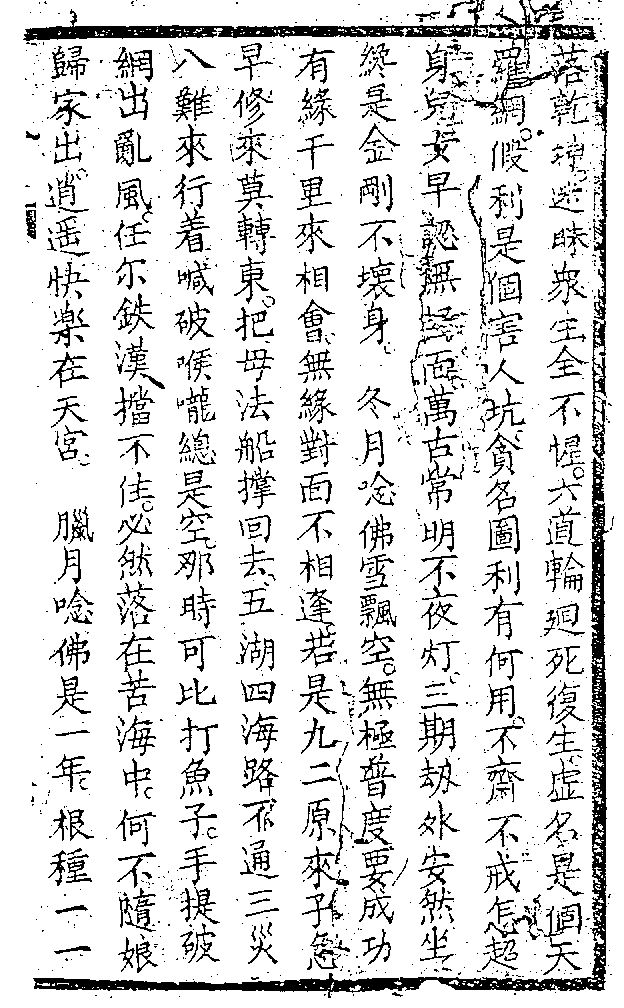 落乾坤。迷昧衆生全不惺。六道輪廻死復生。虛名是個天
羅網。假利是個害人坑。貪名圖利有何用。不齋不戒怎超
身。兒女早認無 面。萬古常明不夜灯。三期劫外安然坐
終是金剛不壞身 冬月唸佛雪飄空。無極普度要成功
有緣千里來相會。無緣對面不相逢。若是九二原來子。急
早修來莫轉東。把母法船撑回去。五湖四海路不通。三災
八難來行着。喊破喉嚨總是空。那時可比打魚子。手提破
網出亂風。任尔鉄漢擋不住。必然落在苦海中。何不隨娘
歸家出。逍遥快楽在天宮。 臘月唸佛是一年。根種一一